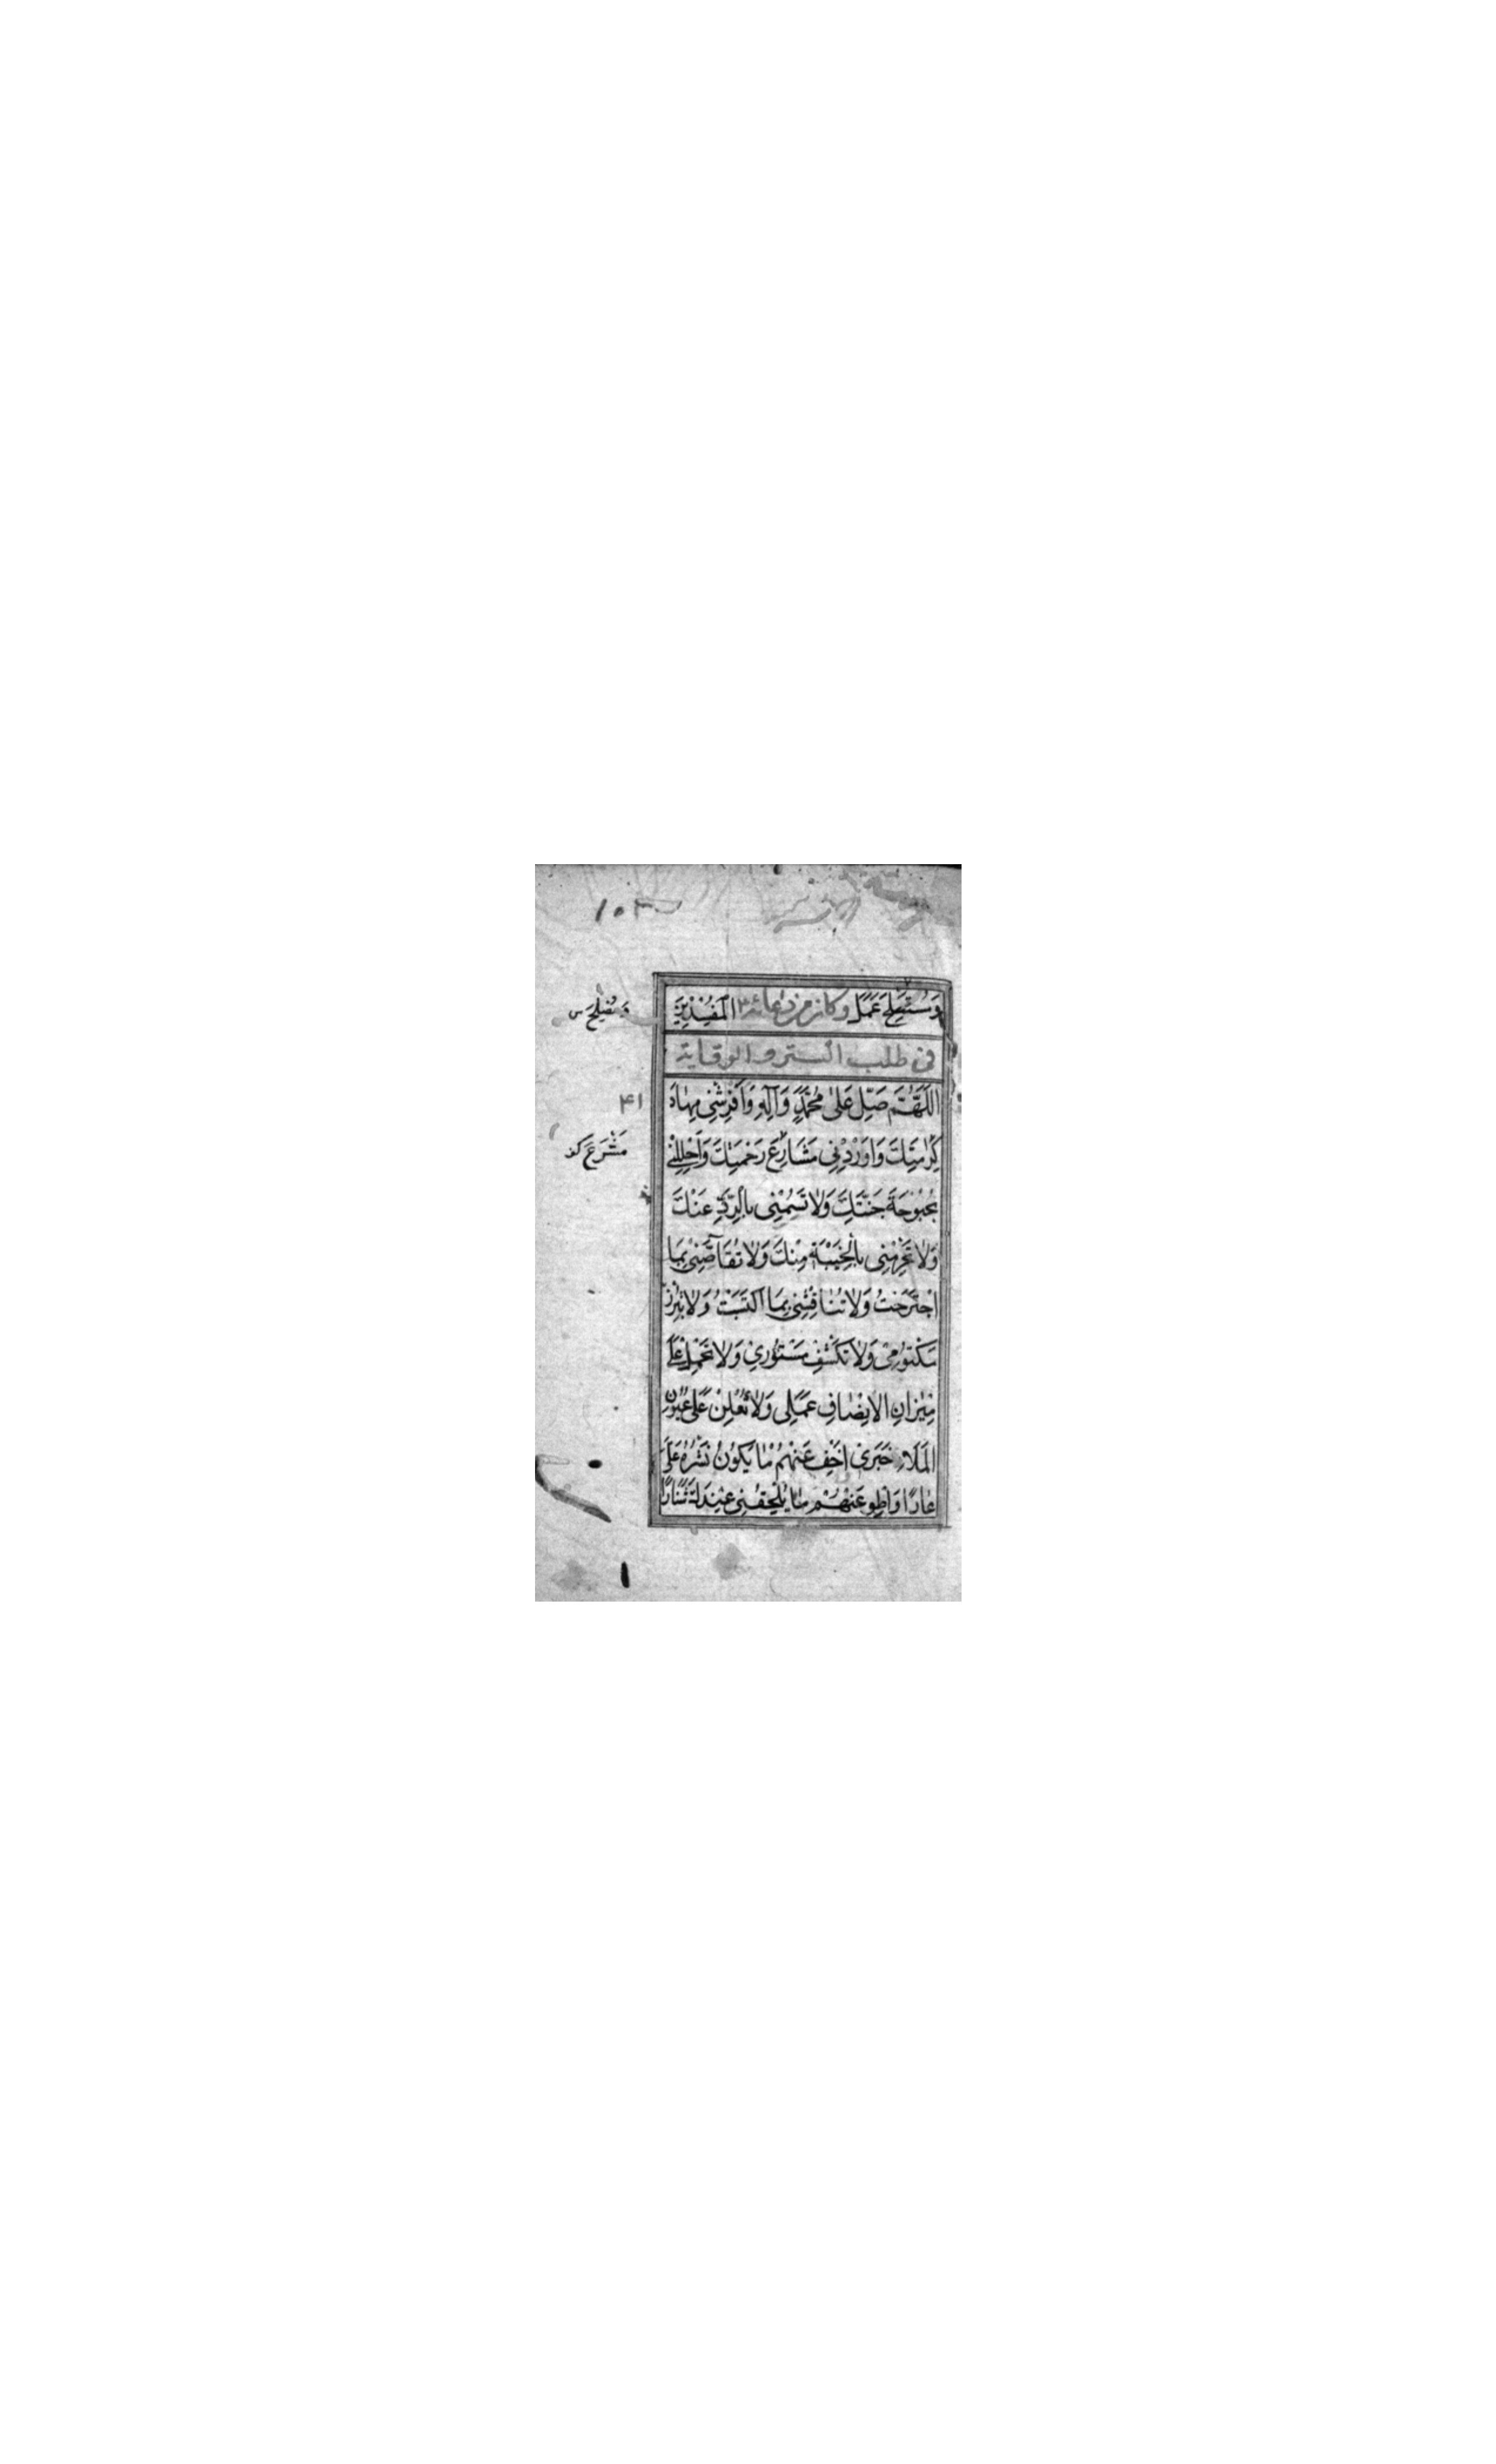 ۱۰۳
وَمُسْتَصْلِحَ عَمَلِ وكان من دعائه ۴ الْمُفْسِدِينَ
وَمُصْلِحَ س
في طلب الستر والوقاية
اللَّهُمَّ صَلِّ عَلىٰ مُحَمَّدٍ وَآلِهِ وَاَفْرِشْنِي مِهٰادَ
۴۱
كَرٰامَتِكَ وَاَوْرِدْنِي مَشٰارِعَ رَحْمَتِكَ وَاَحْلِلْنِي
مَشْرَعَ كف
بُحْبُوحَةَ جَنَّتِكَ وَلاٰ تَسُمْنِي بِالرَّدِّ عَنْكَ
وَلاٰ تَحْرِمْنِي بِالْخَيْبَةِ مِنْكَ وَلاٰ تُقٰاصَّنِي بِمَا
اجْتَرَحْتُ وَلاٰ تُنٰاقِشْنِي بِمَا اكْتَسَبْتُ وَلاٰ تُبْرِزْ
مَكْتُومِي وَلاٰ تَكْشِفْ مَسْتُورِي وَلاٰ تَحْمِلْ عَلَى
مِيزٰانِ الْاِنْصٰافِ عَمَلِي وَلاٰ تُعْلِنْ عَلىٰ عُيُونِ
الْمَلَاءِ خَبَرِي اَخْفِ عَنْهُمْ مٰا يَكُونُ نَشْرُهُ عَلَيَّ
عٰارًا وَاطْوِ عَنْهُمْ مٰا يُلْحِقُنِي عِنْدَكَ شَنٰارًا